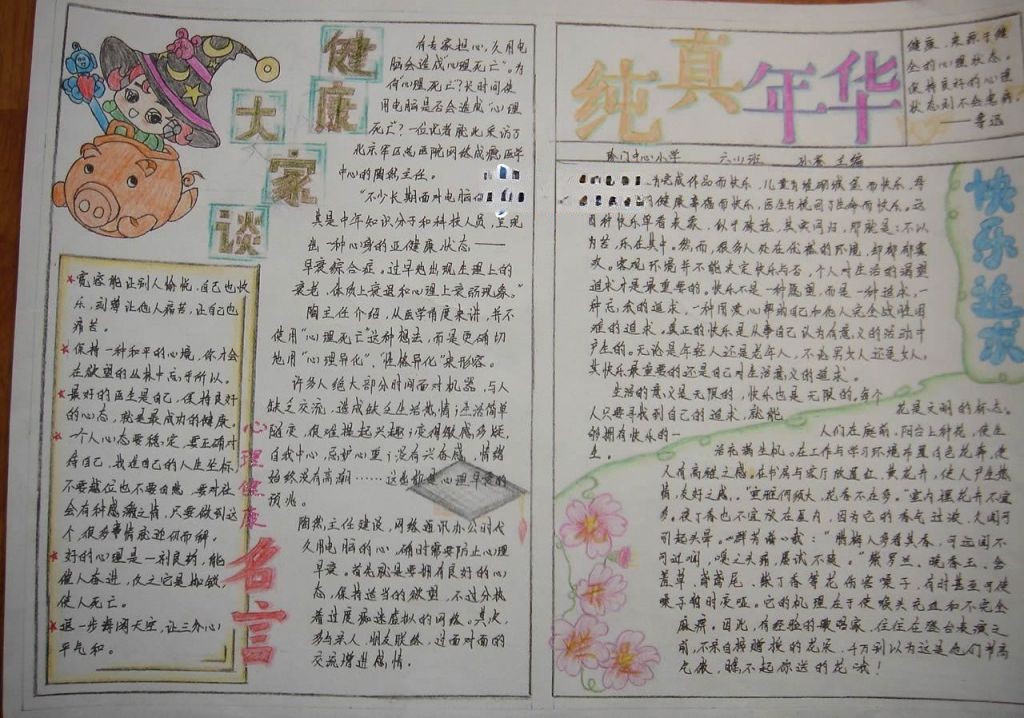 健康
大家谈
有专家担心,久用电
脑会造成“心理死亡”。为
何“心理死亡”?长时间使
用电脑是否会造成“心理
死亡?一位记者就此采访了
北京军区总医院网络成瘾医学
中心的陶然主任。
“不少长期面对电脑
其是中年知识分子和科技人员,呈现
出一种心身的亚健康状态——
早衰综合症。过早地出现生理上的
衰老,体质上衰退和心理上衰弱现象。”
陶主任介绍,从医学角度来讲,并不
使用“心理死亡”这种想法,而是更确切
地用“心理异化”、“性格异化”来形容。
许多人绝大部分时间面对机器,与人
缺乏交流,造成缺乏生活热情;生活简单
随变,很难提起兴趣;变得敏感多疑,
自我中心,庇护心里;没有兴奋感,情绪
始终没有高潮……这些都是心理早衰的
预兆。
陶然主任建议,网络通讯办公时代
久用电脑的心,确时需要防止心理
早衰。首先就是要拥有良好的心
态,保持适当的欲望,不过分执
着过度痴迷虚拟的网络。其次,
多与亲人,朋友联络,过面对面的
交流增进感情。
★宽容能让别人愉悦,自己也快
乐,刻薄让他人痛苦,让自己也
痛苦。
★保持一种和平的心境,你才会
在欲望的丛林中忘乎所以。
★最好的医生是自己,保持良好
的心态,就是最成功的健康。
★一个人心态要稳定,要正确对
待自己,找准自己的人生坐标,
不要越位也不要自卑,要对社
会有种感激之情,只要做到这
个,很多事情就迎刃而解。
★好的心理是一剂良药,能
催人奋进,反之它是枷锁,
使人死亡。
★退一步海阔天空,让三分心
平气和。
心理健康
名言
纯真年华
健康,来源于健
全的心理状态。
保持良好的心理
状态则不会患病。
——鲁迅
中心小学 六(1)班 主编
为完成作品而快乐,儿童有堆砌城堡而快乐,母
的健康幸福而快乐,医生为挽回了生命而快乐。这
四种快乐单看来象,似乎旅途,其实同归,那就是:不以
为苦,乐在其中。然而,很多人处在优裕的环境,却郁郁寡
欢。客观环境并不能决定快乐与否,个人对生活的渴望
追求才是最重要的。快乐不是一种愿望,而是一种追求,一
种忘我的追求,一种用爱心帮助自己和他人完全战胜困
难的追求,真正的快乐是从事自己认为有意义的活动中
产生的。无论是年轻人还是老年人,不论男女人还是女人,
其快乐最重要的还是自己对生活意义的追求。
生活的意义是无限的,快乐也是无限的,每个
人只要寻找到自己的追求,就能
够拥有快乐的一
生。
快乐追求
花是文明的标志。
人们在庭前,阳台上种花,使生
活充满生机。在工作与学习环境布置白色花卉,使
人有高雅之感。在书房与客厅放置红,黄花卉,使人产生热
情,友好之感。“室雅何须大,花香不在多。”室内摆花卉不宜
多。夜丁香也不宜放在室内,因为它的香气过浓,久闻可
引起头晕。
可近闻,嗅之头痛,屡试不疑。”紫罗兰、晚香玉、金
嗓子暂时变哑。它的机理在于使喉头充血和不完全
麻痹。因此,有经验的歌唱家,往往在登台表演之
前,不亲自接赠接的花朵,千万别以为这是他们节高
气傲,瞧不起你送的花哦!